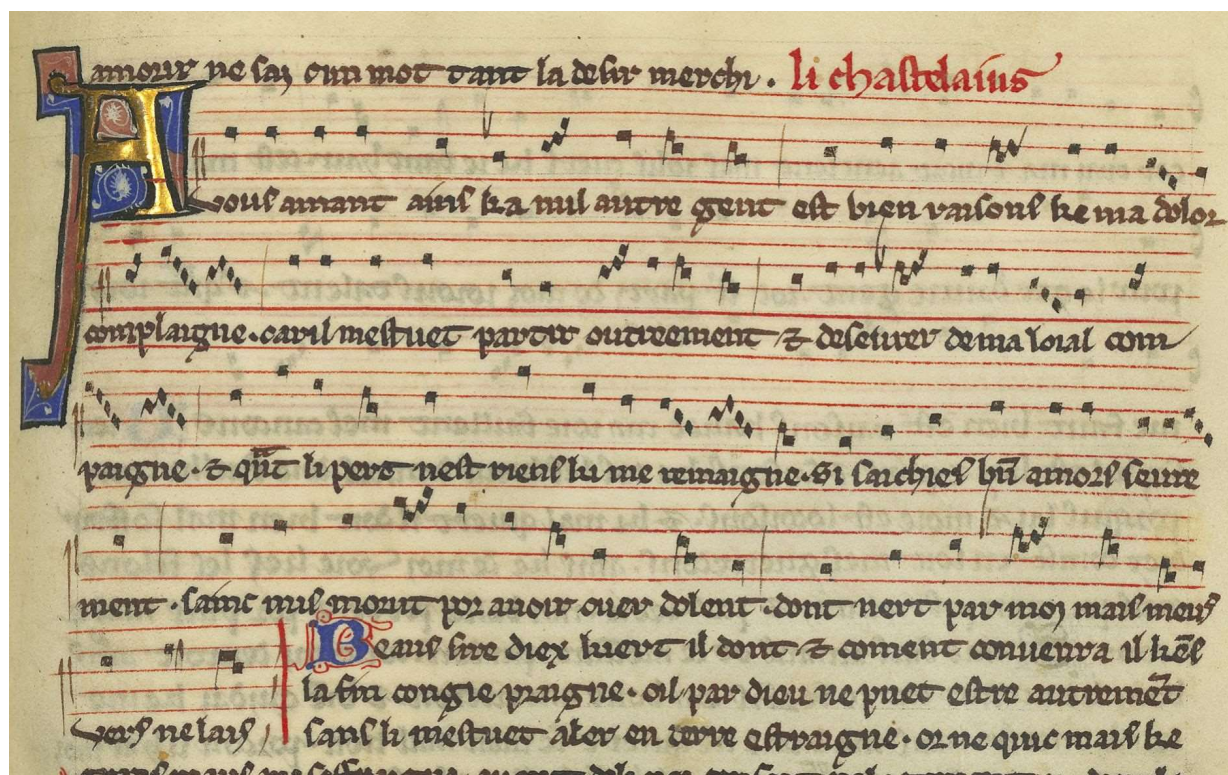 amour ne sai cun mot tant la desir merchi . li chastelains
A vous amant ains ka nul autre gent est bien raisons ke ma dolor
complaigne . car il mestuet partir outreement & desevrer de ma loial com
paigne . & qn̄t li pert nest riens ki me remaigne . Si saichies bn̄ amors seure
ment . sainc nus morut por avoir cuer dolent . dont nert par moi mais meus
vers ne lais /
Beaus sire diex kiert il dont & coment convenra il kē
la fin congie praigne . oil par dieu ne puet estre autremēt
sans li mestuet aler en terre estraigne . or ne quic mais ke